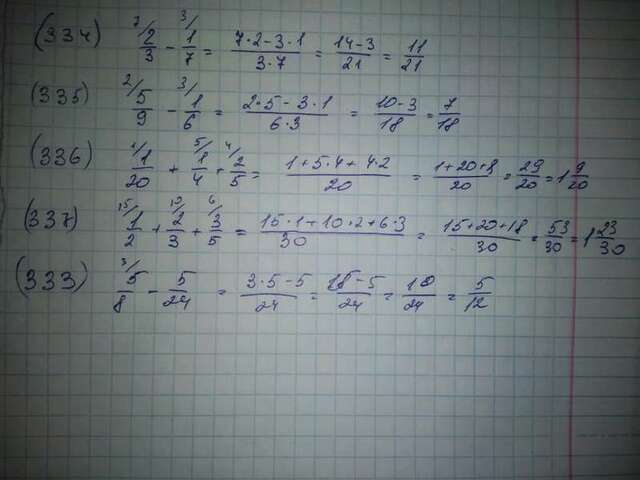 (334) ⁷/2/3 - ³/1/7 = 7·2-3·1/3·7 = 14-3/21 = 11/21
(335) ²/5/9 - ³/1/6 = 2·5-3·1/6·3 = 10-3/18 = 7/18
(336) ¹/1/20 + ⁵/1/4 + ⁴/2/5 = 1+5·4+4·2/20 = 1+20+8/20 = 29/20 = 1 9/20
(337) ¹⁵/1/2 + ¹⁰/2/3 + ⁶/3/5 = 15·1+10·2+6·3/30 = 15+20+18/30 = 53/30 = 1 23/30
(333) ³/5/8 - 5/24 = 3·5-5/24 = 15-5/24 = 10/24 = 5/12